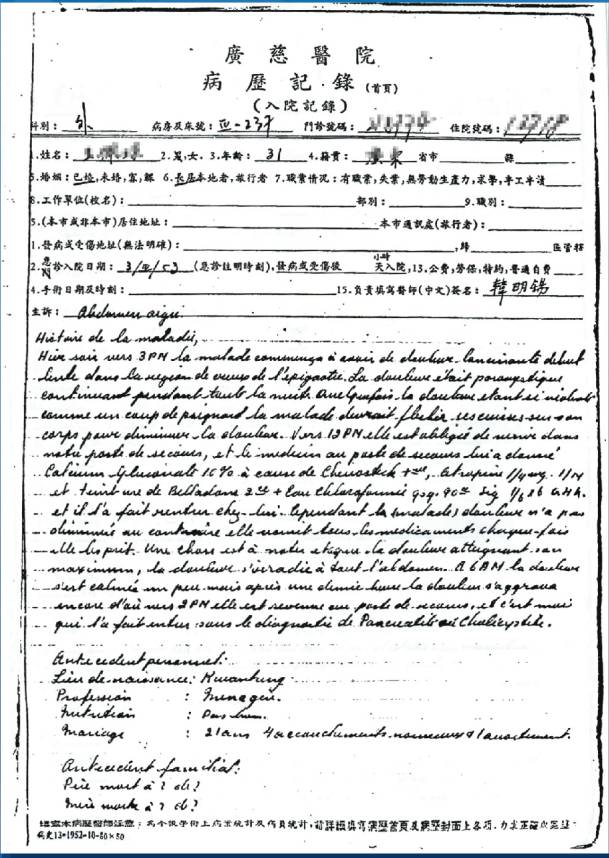 廣慈醫院
病歷記錄(首頁)
(入院記錄)
科別: 外 病房及床號: 237 門診號碼: 住院號碼: 12718
1.姓名: 2.男,女. 3.年齡: 31 4.籍貫: 廣東 省市 縣
5.婚姻:已婚,未婚,寡,鰥 6.長居本地者,旅行者 7.職業情況:有職業,失業,無勞動生產力,求學,半工半讀
8.工作單位(校名): 部別: 9.職別:
(本市或非本市)居住地址: 本市通訊處(旅行者):
1.發病或受傷地址(無法明確):
2.急診入院日期: (急診註明時刻),發病或受傷後 小時 天入院,13.公費,勞保,特約,普通自費
4.手術日期及時刻: 15.負責填寫醫師(中文)簽名: 韓明錫
主訴: Abdomen aigu
Histoire de la maladie,
Hier soir vers 3PM la malade commença à avoir de douleur lancinante début
lente dans la région de creux de l'épigastre. La douleur était paroxystique
continuant pendant toute la nuit. Quelquefois la douleur étant si violent
comme un coup de poignard la malade devrait fléchir ses cuisses sur son
corps pour diminuer la douleur. Vers 12PM elle est obligée de venir dans
notre poste de secours, et le médecin au poste de secours lui a donné
Calcium Gluconate 10% à cause de Atropine
et teinture de Belladone + Eau Chloroformée
et il l'a fait rentrer chez-lui. Cependant la malade douleur n'a pas
diminué au contraire elle vomit tous les medicaments chaque fois
elle les prit. Une chose est à noter et que la douleur atteignant son
maximum, la douleur s'irradie à tout l'abdomen. A 6AM la douleur
s'est calmée un peu mais après une demie heure la douleur s'aggrava
encore vers 2PM elle est revenue au poste de secours, et c'est moi
qui l'a fait entrer sous le diagnostic de Pancreatite ou Cholecystite.
Antecedent personnel:
Lieu de naissance: Kwantung
Profession : Menagère.
Nutrition : Pas bon.
Mariage : 21 ans 4 accouchements normaux et 1 avortement.
Antecedent familial:
Père mort à ? de ?
Mère morte à ? de ?